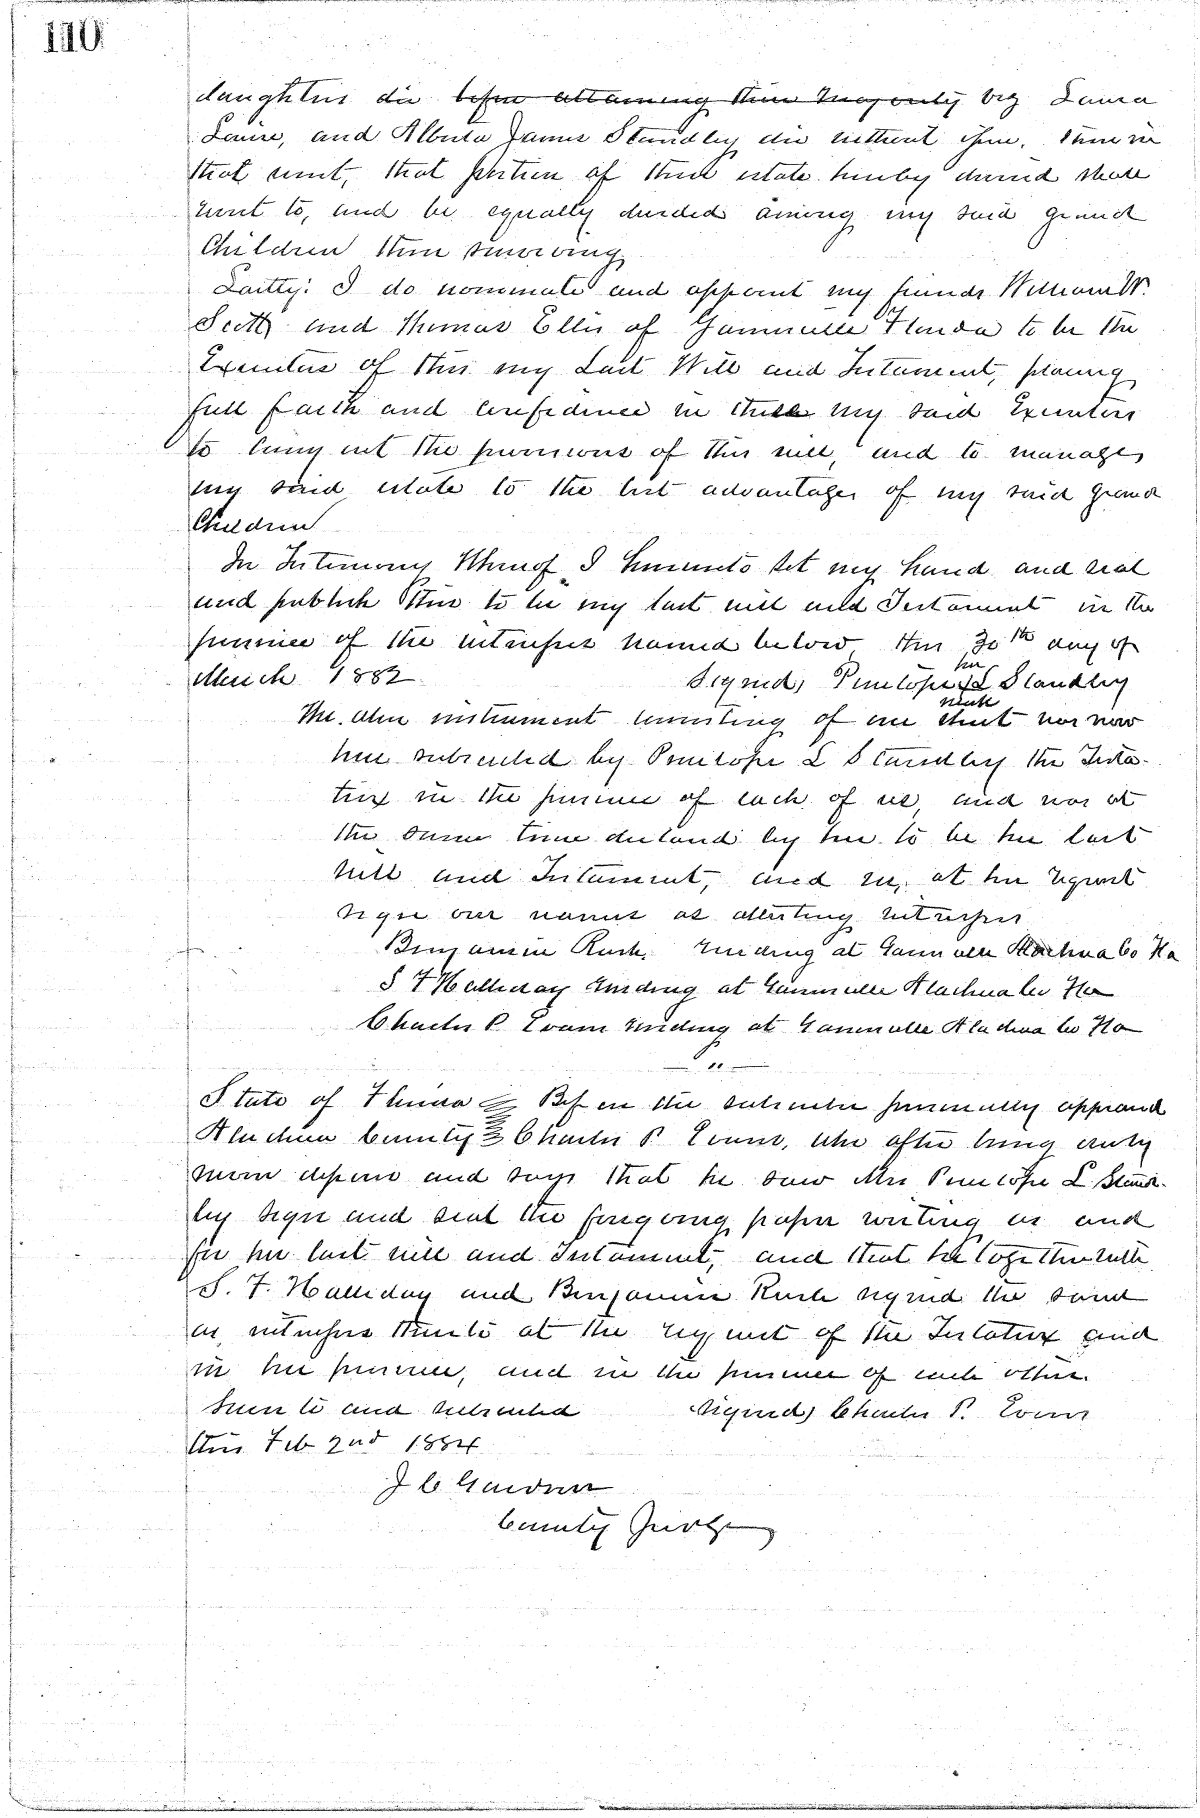 110
daughters die before attaining their majority viz Laura
Louise, and Alberta James Standley die without issue. Then in
that event, that portion of their estate hereby devised shall
revert to, and be equally divided among my said grand
Children then surviving
Lastly: I do nominate and appoint my friends William W.
Scott and Thomas Ellis of Gainesville Florida to be the
Executors of this my Last Will and Testament, placing
full faith and confidence in these my said Executors
to carry out the provisions of this will, and to manage
my said estate to the best advantages of my said grand
Children
In Testimony Whereof I hereunto set my hand and seal
and publish this to be my last will and Testament in the
presence of the witnesses named below this 30th day of
March 1882 Signed, Penelope L Standley
her
mark
The above instrument consisting of one sheet was now
here subscribed by Penelope L Standley the Testa-
trix in the presence of each of us, and was at
the same time declared by her to be her last
will and Testament, and we, at her request
sign our names as attesting witnesses
Benjamin Rush. residing at Gainesville Alachua Co Fla
S F Halliday residing at Gainesville Alachua Co Fla
Charles P. Evans residing at Gainesville Alachua Co Fla
State of Florida Before the subscriber personally appeared
Alachua County Charles P. Evans, who after being duly
sworn deposes and says that he saw Mrs Penelope L Stand-
ley sign and seal the foregoing paper writing as and
for her last will and Testament, and that he together with
S. F. Halliday and Benjamin Rush signed the same
as witnesses thereto at the request of the Testatrix and
in her presence, and in the presence of each other.
Sworn to and subscribed Signed) Charles P. Evans
this Feb 2nd 1884
J C Gardner
County Judge